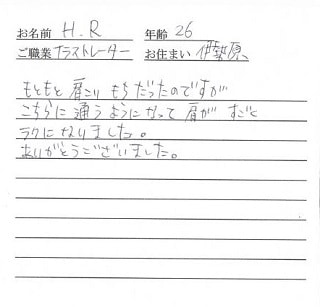 お名前 H.R 年齢 26
ご職業 イラストレーター お住まい 伊勢原
もともと肩こりもちだったのですが
こちらに通うようになって肩がすごく
ラクになりました。
ありがとうございました。